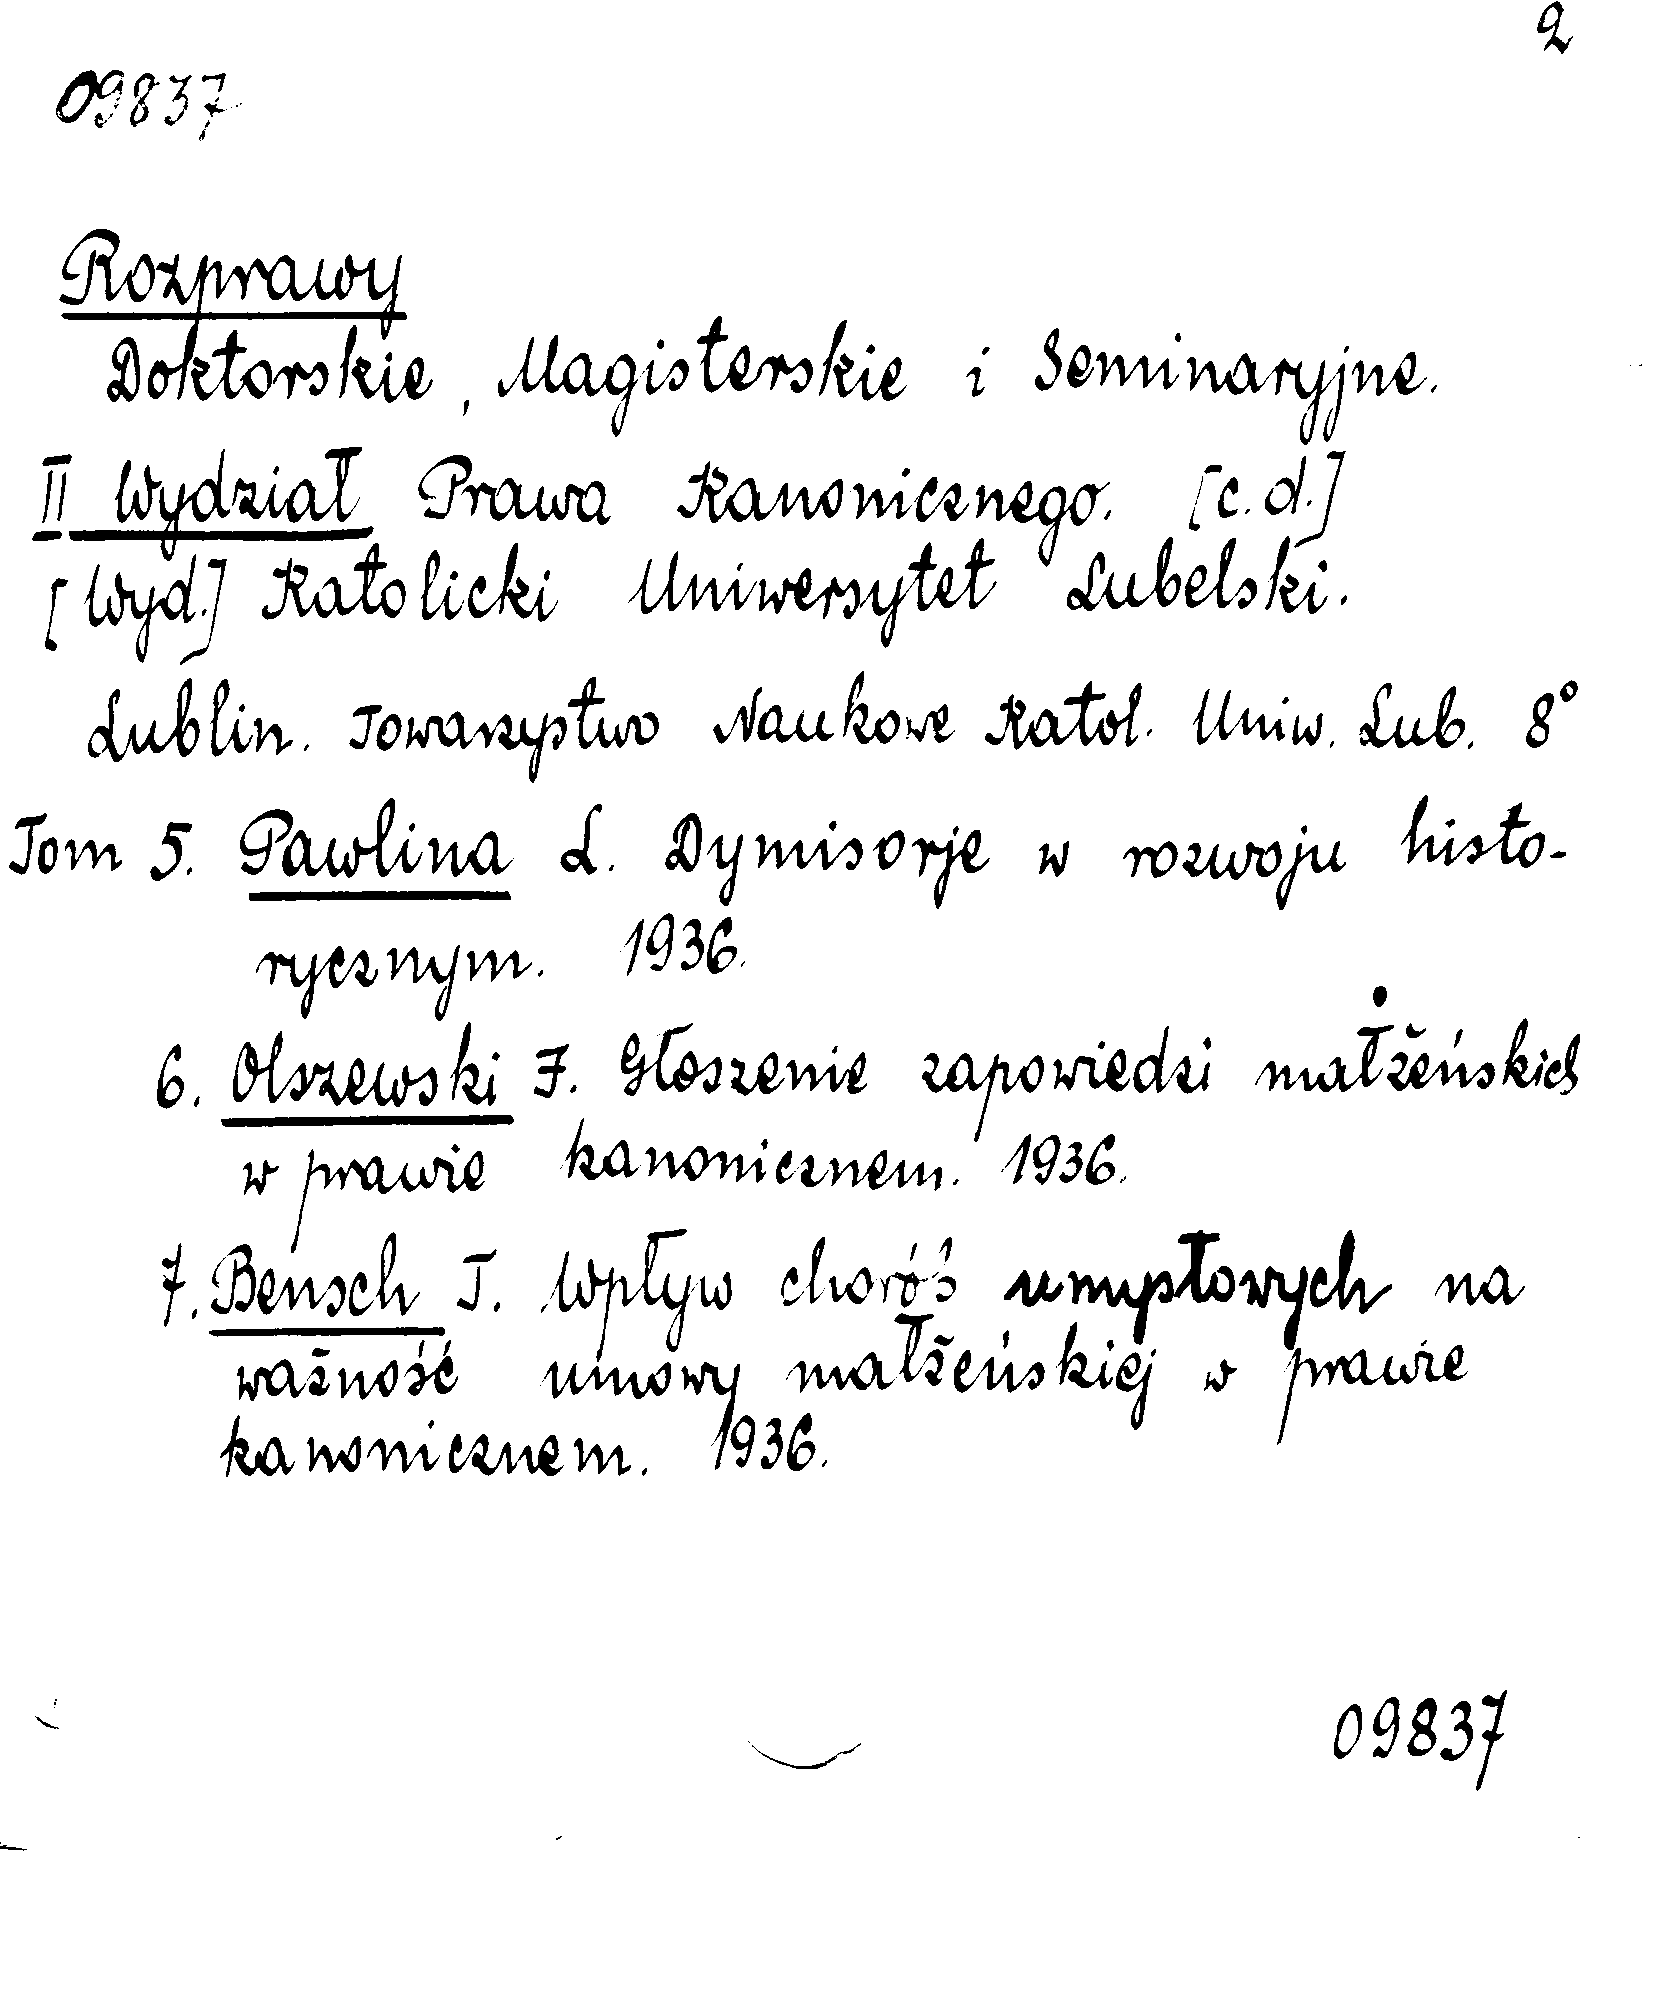 2
09837
Rozprawy
Doktorskie, Magisterskie i Seminaryjne.
II Wydział Prawa Kanonicznego. [c.d.]
[Wyd.] Katolicki Uniwersytet Lubelski.
Lublin. Towarzystwo Naukowe Katol. Uniw. Lub. 8°
Tom 5. Pawlina L. Dymisorje w rozwoju histo-
rycznym. 1936.
6. Olszewski F. Głoszenie zapowiedzi małżeńskich
w prawie kanonicznem. 1936.
7. Bensch T. Wpływ chorób umysłowych na
ważność umowy małżeńskiej w prawie
kanonicznem. 1936.
09837